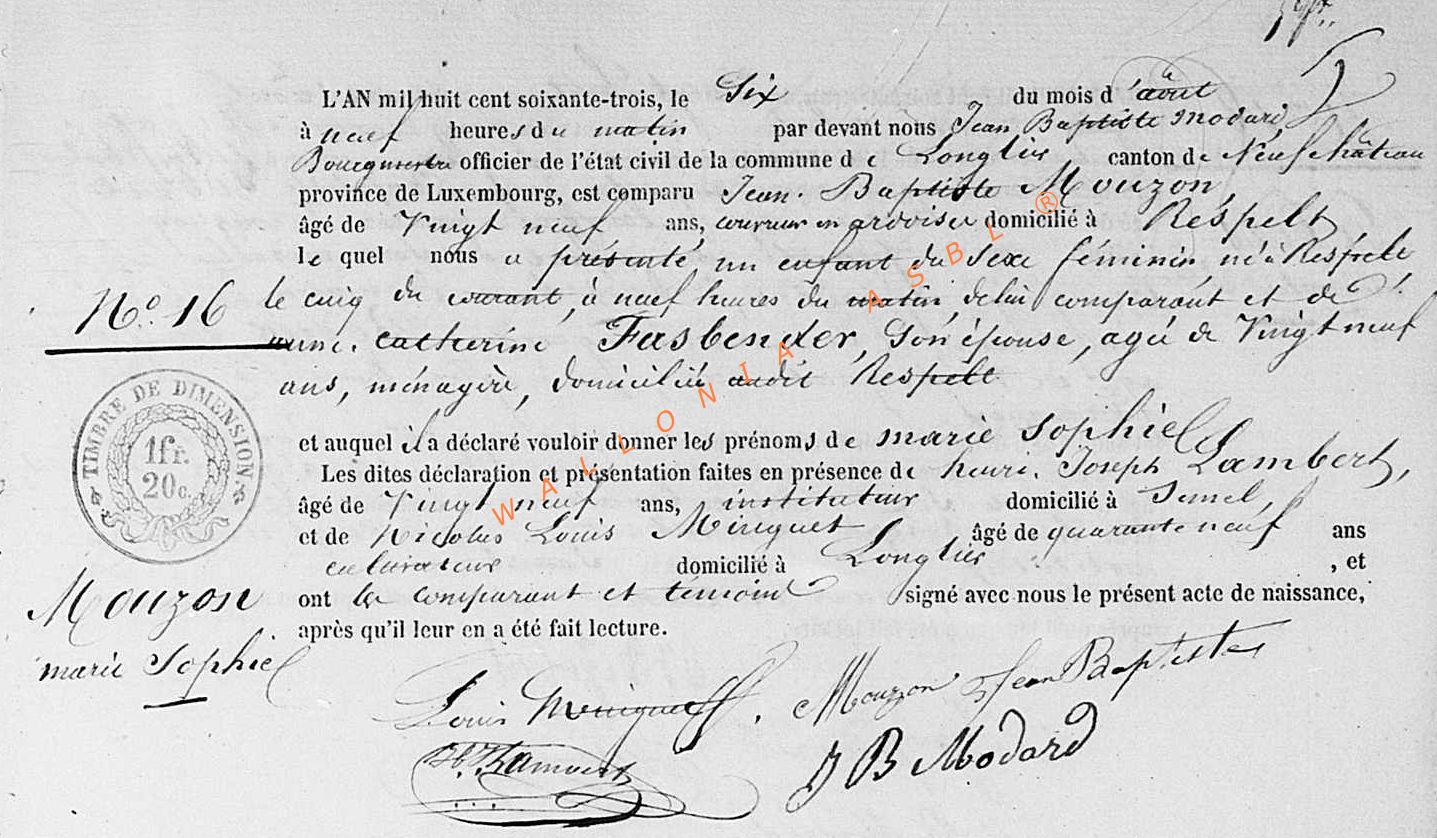 L'AN mil huit cent soixante-trois, le Six du mois d'août
à neuf heures du matin par devant nous Jean Baptiste Modard,
Bourgmestre officier de l'état civil de la commune de Longlier, canton de Neufchâteau
province de Luxembourg, est comparu Jean Baptiste Mouzon,
âgé de Vingt neuf ans, couvreur en ardoises domicilié à Respelt
lequel nous a présenté un enfant du Sexe féminin, né à Respelt
No. 16
le cinq du courant, à neuf heures du matin, de lui comparant et de
Catherine Fasbender, Son épouse, agée de Vingt neuf
ans, ménagère, domiciliée audit Respelt
TIMBRE DE DIMENSION
1fr. 20c.
et auquel il a déclaré vouloir donner les prénoms de marie Sophie
Les dites déclaration et présentation faites en présence de henri Joseph Lambert,
âgé de Vingt neuf ans, instituteur domicilié à Semel,
et de Nicolas Louis Minguet âgé de quarante neuf ans
cultivateur domicilié à Longlier , et
ont les comparant et témoins signé avec nous le présent acte de naissance,
après qu'il leur en a été fait lecture.
Mouzon
marie Sophie
Louis Minguet. Mouzon Jean Baptiste
Lambert J B Modard
WALLONIA ASBL ®